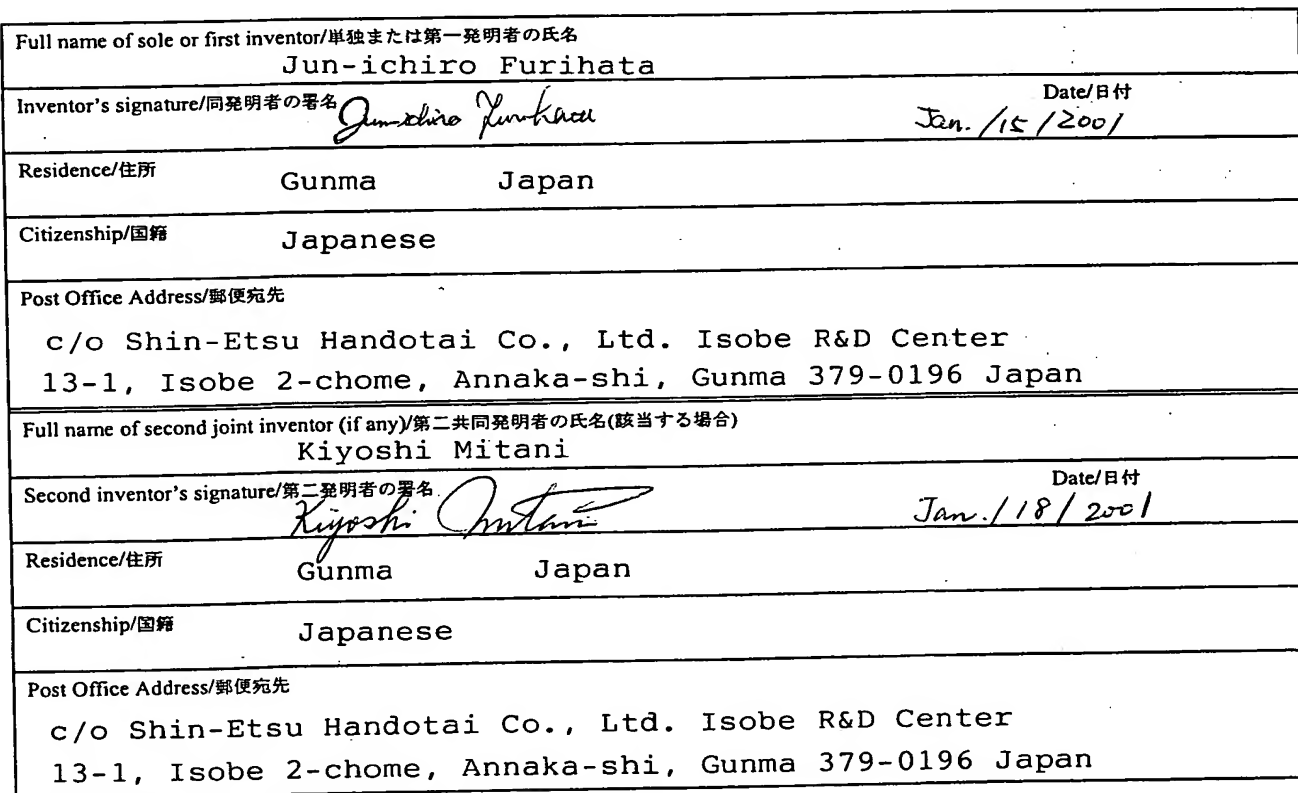 Full name of sole or first inventor/単独または第一発明者の氏名
Jun-ichiro Furihata
Inventor's signature/同発明者の署名 Jun-ichiro Furihata Date/日付
Jan. /15/2001
Residence/住所 Gunma Japan
Citizenship/国籍 Japanese
Post Office Address/郵便宛先
c/o Shin-Etsu Handotai Co., Ltd. Isobe R&D Center
13-1, Isobe 2-chome, Annaka-shi, Gunma 379-0196 Japan
Full name of second joint inventor (if any)/第二共同発明者の氏名(該当する場合)
Kiyoshi Mitani
Second inventor's signature/第二発明者の署名 Date/日付
Kiyoshi Mitani Jan./18/2001
Residence/住所 Gunma Japan
Citizenship/国籍 Japanese
Post Office Address/郵便宛先
c/o Shin-Etsu Handotai Co., Ltd. Isobe R&D Center
13-1, Isobe 2-chome, Annaka-shi, Gunma 379-0196 Japan